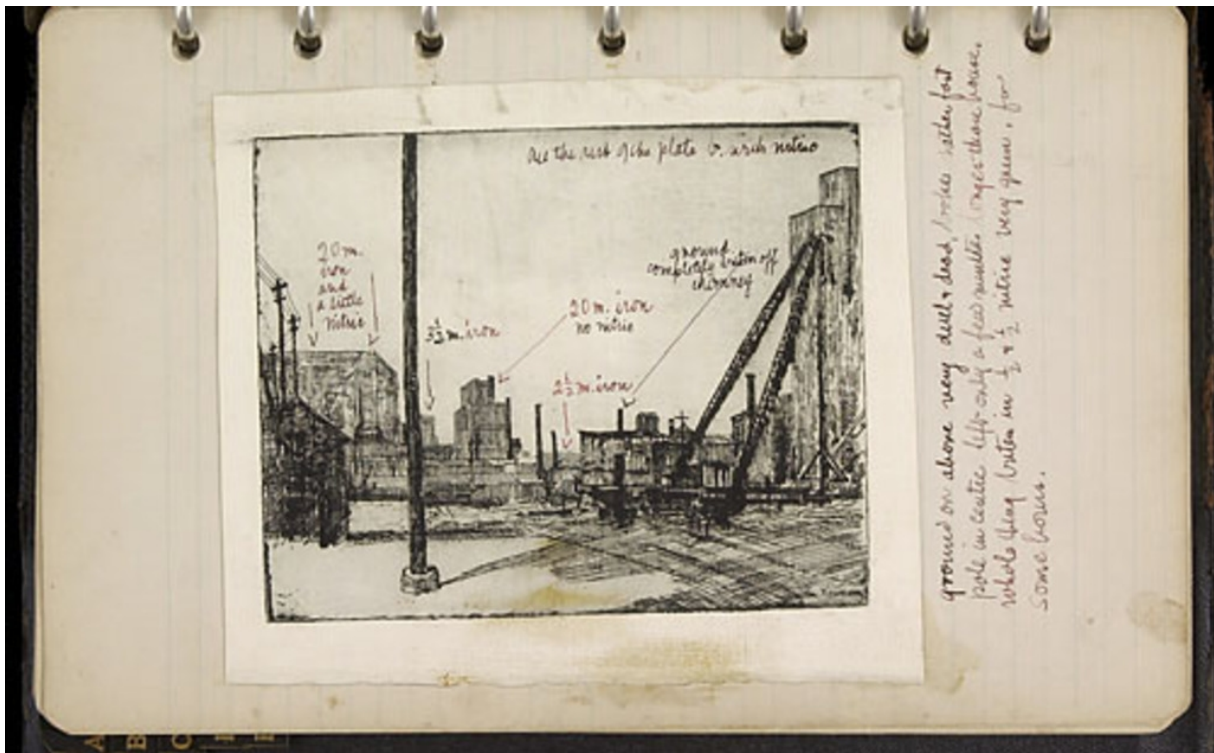 all the rest of the plate by nitric
20 m.
iron
and
a little
nitric
3½ m. iron
20 m. iron
no nitric
2½ m. iron
ground
completely bitten off
chimney
ground on above very dull & dead, broke rather fast
pole in centre left only a few minutes longer than house.
whole thing bitten in ½ & ½ nitric very green, for
some hours.
A
B
C